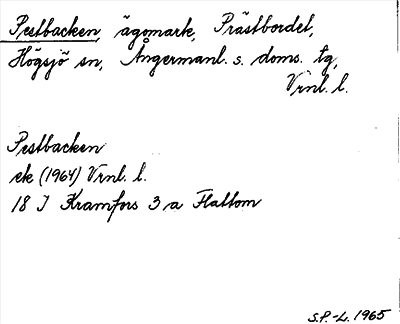 Pestbacken, ägomark, Prästbordet,
Högsjö sn, Ångermanl. s. doms. tg,
Vrnl. l.
Pestbacken
ek (1964) Vrnl. l.
18 I Kramfors 3 a Flattom
S.P.-L. 1965